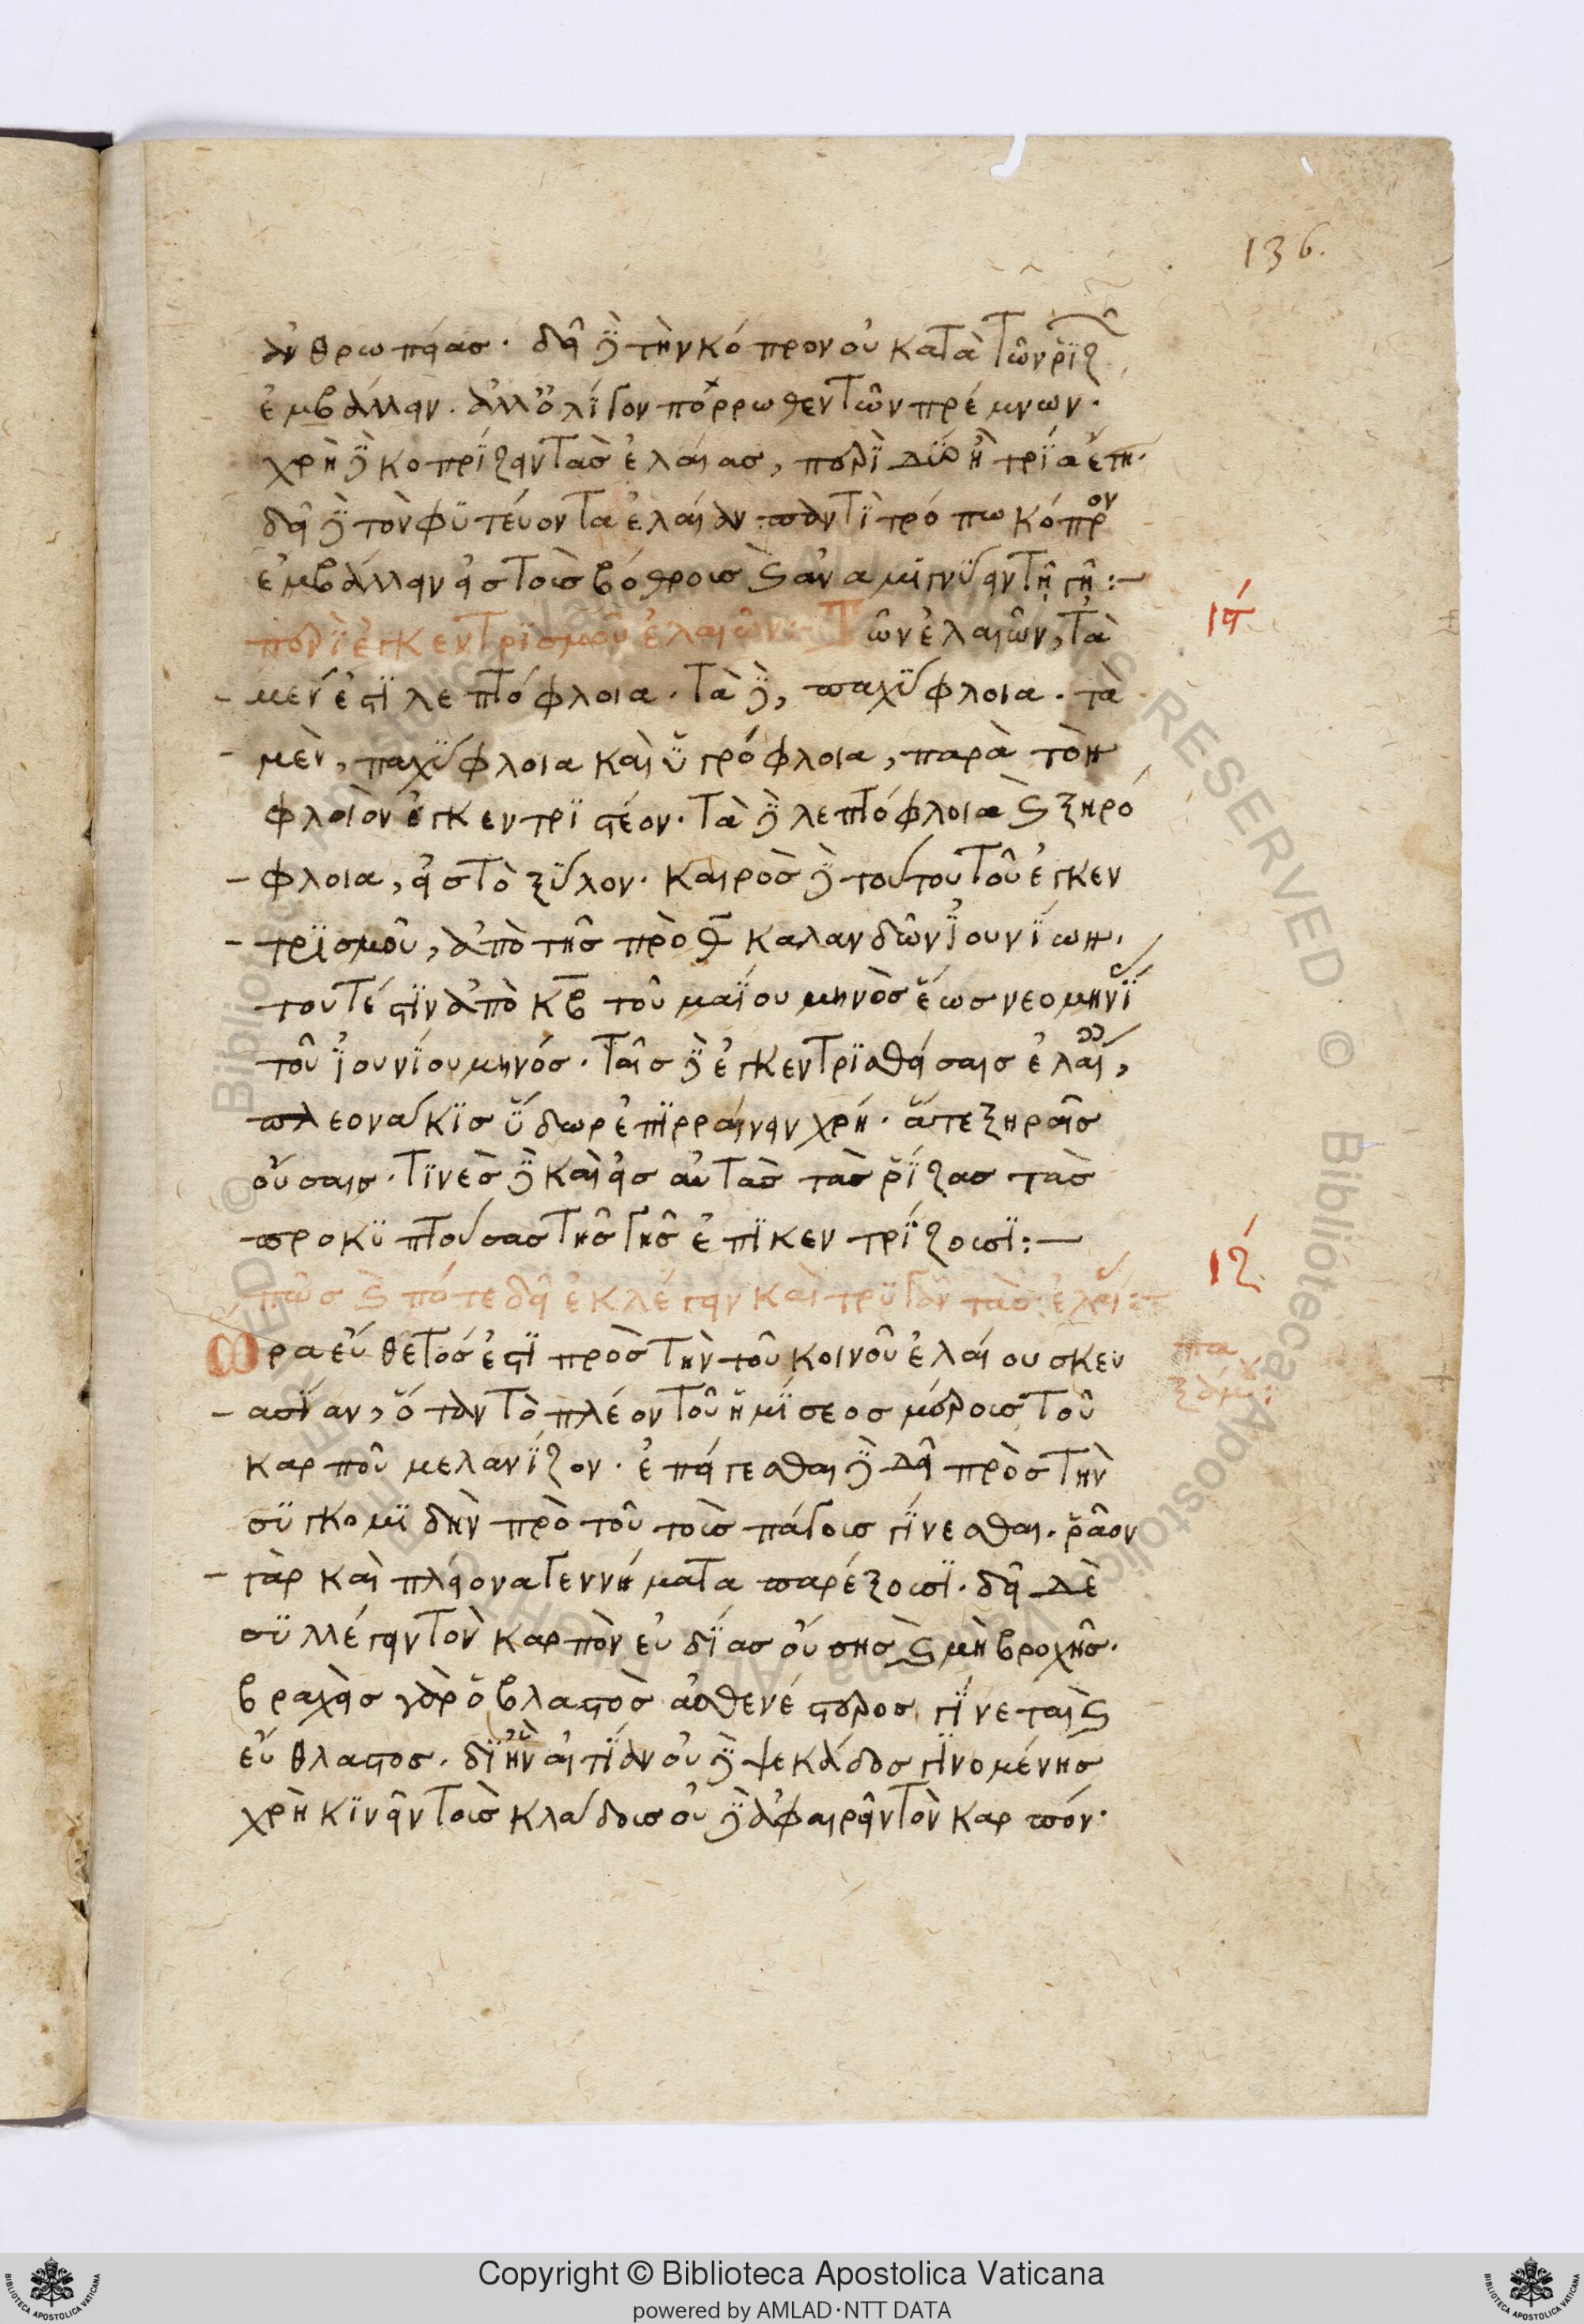 136.
ἀνθρωπείας· δεῖ δὲ τὴν κόπρον οὐ κατὰ τῶν ῥιζῶν
ἐμβάλλειν· ἀλλ' ὀλίγον πόρρωθεν τῶν πρέμνων·
χρὴ δὲ κοπρίζειν τὰς ἐλαίας, περὶ δύο ἢ τρία ἔτη·
δεῖ δὲ τὸν φυτεύοντα ἐλαίαν παντὶ τρόπω κόπρον
ἐμβάλλειν εἰς τοῖς βόθροις καὶ ἀναμιγνύειν τῇ γῇ:—
περὶ ἐγκεντρισμοῦ ἐλαιῶν:- Τῶν ἐλαιῶν, τὰ
ις
μέν ἐστι λεπτόφλοια· τὰ δὲ, παχύφλοια· τὰ
μὲν, παχύφλοια καὶ ὑγρόφλοια, παρὰ τὸν
φλοιὸν ἐγκεντριστέον· τὰ δὲ λεπτόφλοια καὶ ξηρό
φλοια, εἰς τὸ ξύλον· καιρὸς δὲ τούτου τοῦ ἐγκεν
τρισμοῦ, ἀπὸ τῆς πρὸ θ καλανδῶν ἰουνίων·
τουτέστιν ἀπὸ κβ τοῦ μαΐου μηνὸς ἕως νεομηνί
τοῦ ἰουνίου μηνός· ταῖς δὲ ἐγκεντρισθείσαις ἐλαίαις,
πλεονάκις ὕδωρ ἐπιρραίνειν χρή· ἅτε ξηραῖς
οὔσαις· τινὲς δὲ καὶ εἰς αὐτὰς τὰς ῥίζας τὰς
προκυπτούσας τῆς γῆς ἐπικεντρίζουσι:—
πῶς καὶ πότε δεῖ ἐκλέγειν καὶ τρυγᾶν τὰς ἐλαίας:-
ιζ
Ὥρα εὔθετός ἐστι πρὸς τὴν τοῦ κοινοῦ ἐλαίου σκευ
ασίαν, ὅταν τὸ πλέον τοῦ ἡμίσεος μέροις τοῦ
καρποῦ μελανίζον· ἐπείγεσθαι δὲ δεῖ πρὸς τὴν
συγκομιδὴν πρὸ τοῦ τοῖς πάγοις γίνεσθαι· ῥᾶον
γὰρ καὶ πλείονα γεννήματα παρέξουσι· δεῖ δὲ
συλλέγειν τὸν καρπὸν εὐδίας οὔσης καὶ μὴ βροχῆς·
βραχεὶς γὰρ ὁ βλαστὸς ἀσθενέστερος γίνεται καὶ
εὔθλαστος· δι' ἣν αἰτίαν οὐδὲ ψεκάδος γινομένης
χρὴ κινεῖν τοῖς κλάδοις οὐδὲ ἀφαιρεῖν τὸν καρπόν·
Copyright © Biblioteca Apostolica Vaticana
powered by AMLAD·NTT DATA